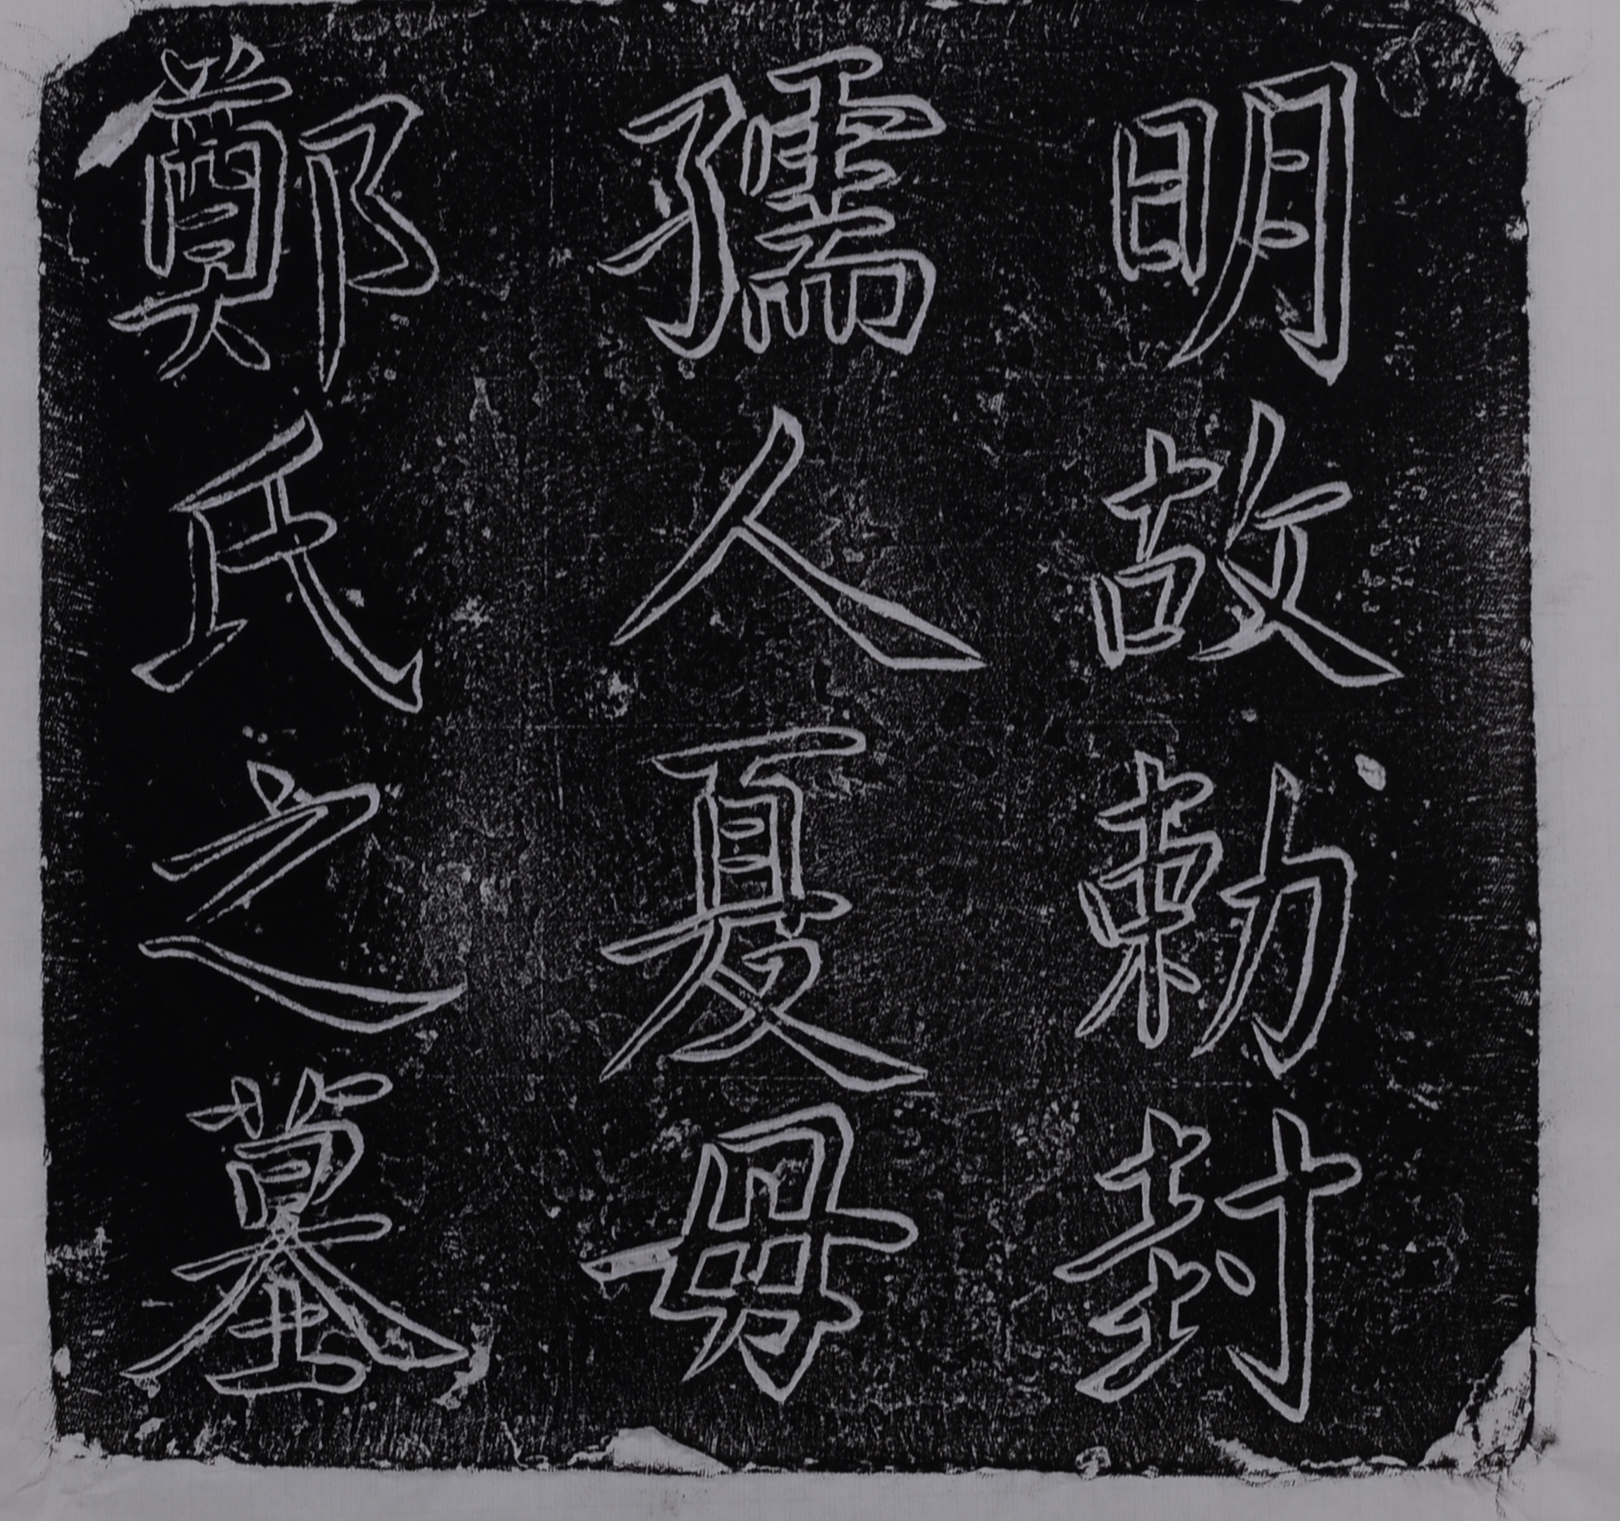 明故勅封
孺人夏母
鄭氏之墓